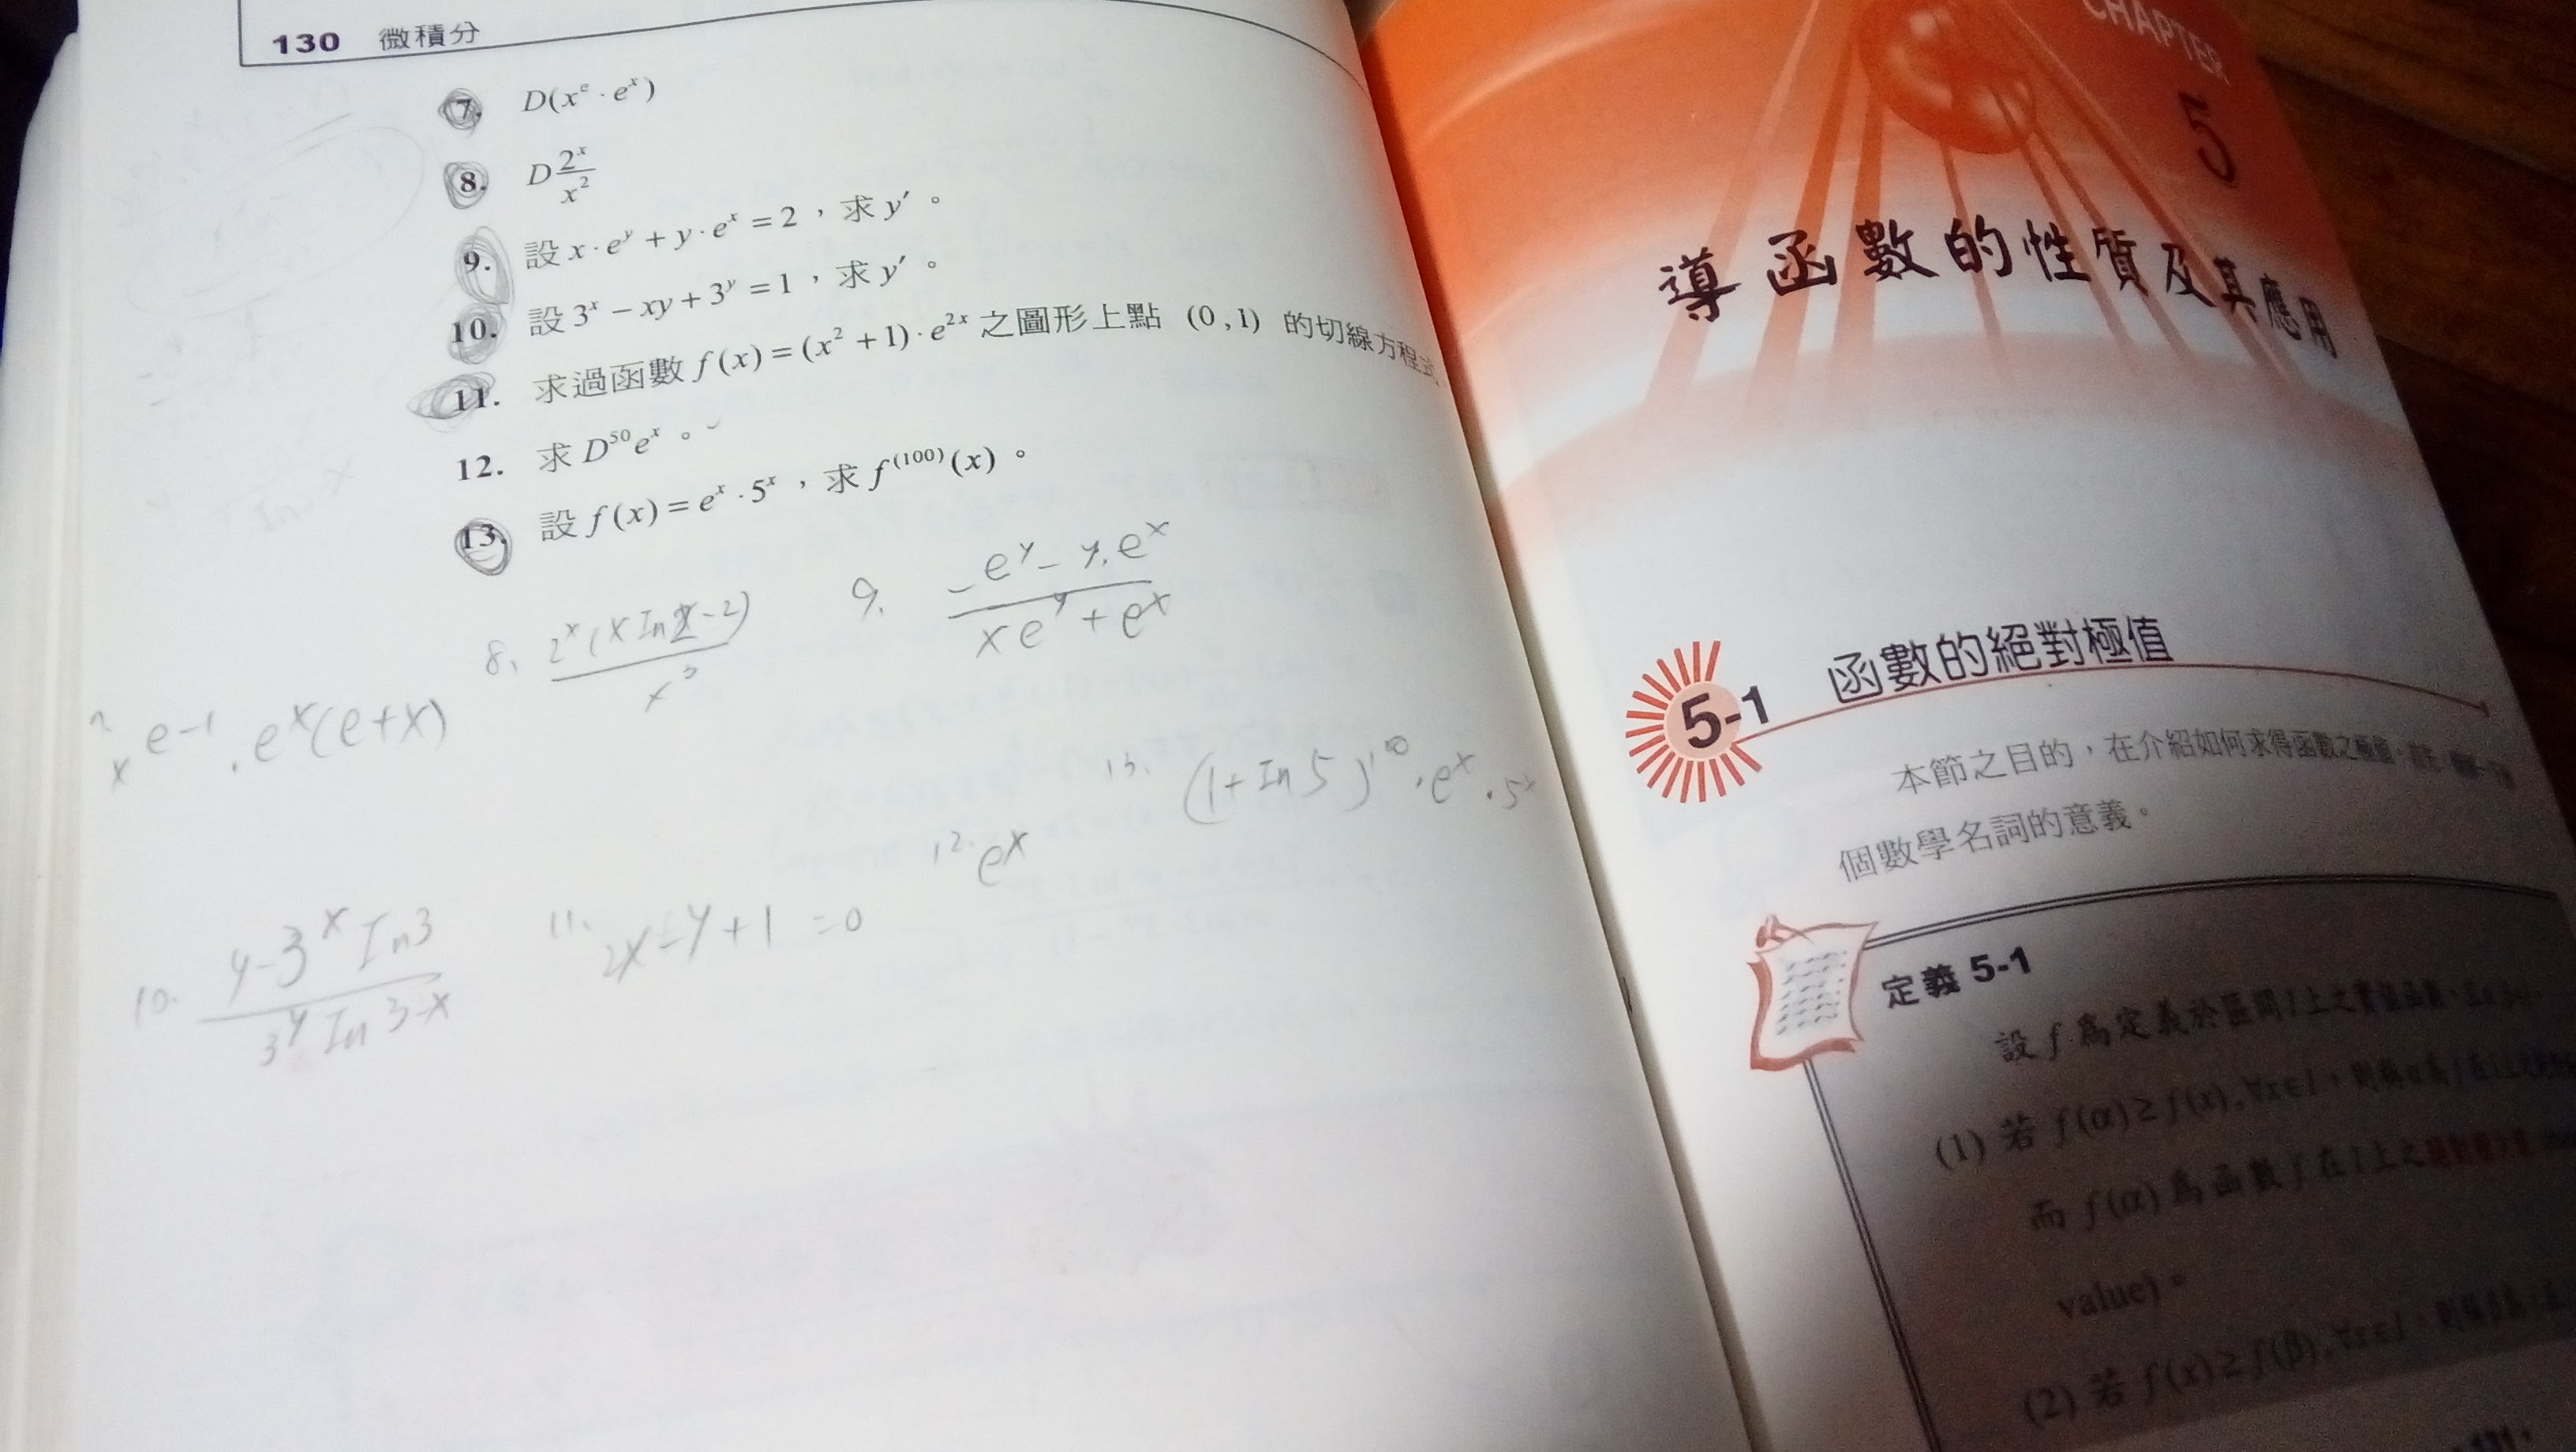 130 微積分
7. D(xᵉ · eˣ)
8. D 2ˣ/x²
9. 設 x · eʸ + y · eˣ = 2，求 y′。
10. 設 3ˣ − xy + 3ʸ = 1，求 y′。
11. 求過函數 f(x) = (x² + 1) · e²ˣ 之圖形上點 (0, 1) 的切線方程式
12. 求 D⁵⁰eˣ。
13. 設 f(x) = eˣ · 5ˣ，求 f⁽¹⁰⁰⁾(x)。
8. 2ˣ(x In2-2)/x³
9. -eʸ - y.eˣ/xeʸ + eˣ
xᵉ⁻¹.eˣ(e+x)
13. (1+In5)¹⁰⁰.eˣ.5ˣ
12. eˣ
10. y-3ˣIn3/3ʸIn3-x
11. 2x-y+1=0
CHAPTER
5
導函數的性質及其應用
5-1 函數的絕對極值
本節之目的，在介紹如何求得函數之極值，
個數學名詞的意義。
定義 5-1
設 f 為定義於區間 I 上之實值函數，
(1) 若 f(α) ≥ f(x), ∀x∈I，則稱
而 f(α) 為函數 f 在 I 上之
value)。
(2) 若 f(x) ≥ f(β), ∀x∈I，則稱